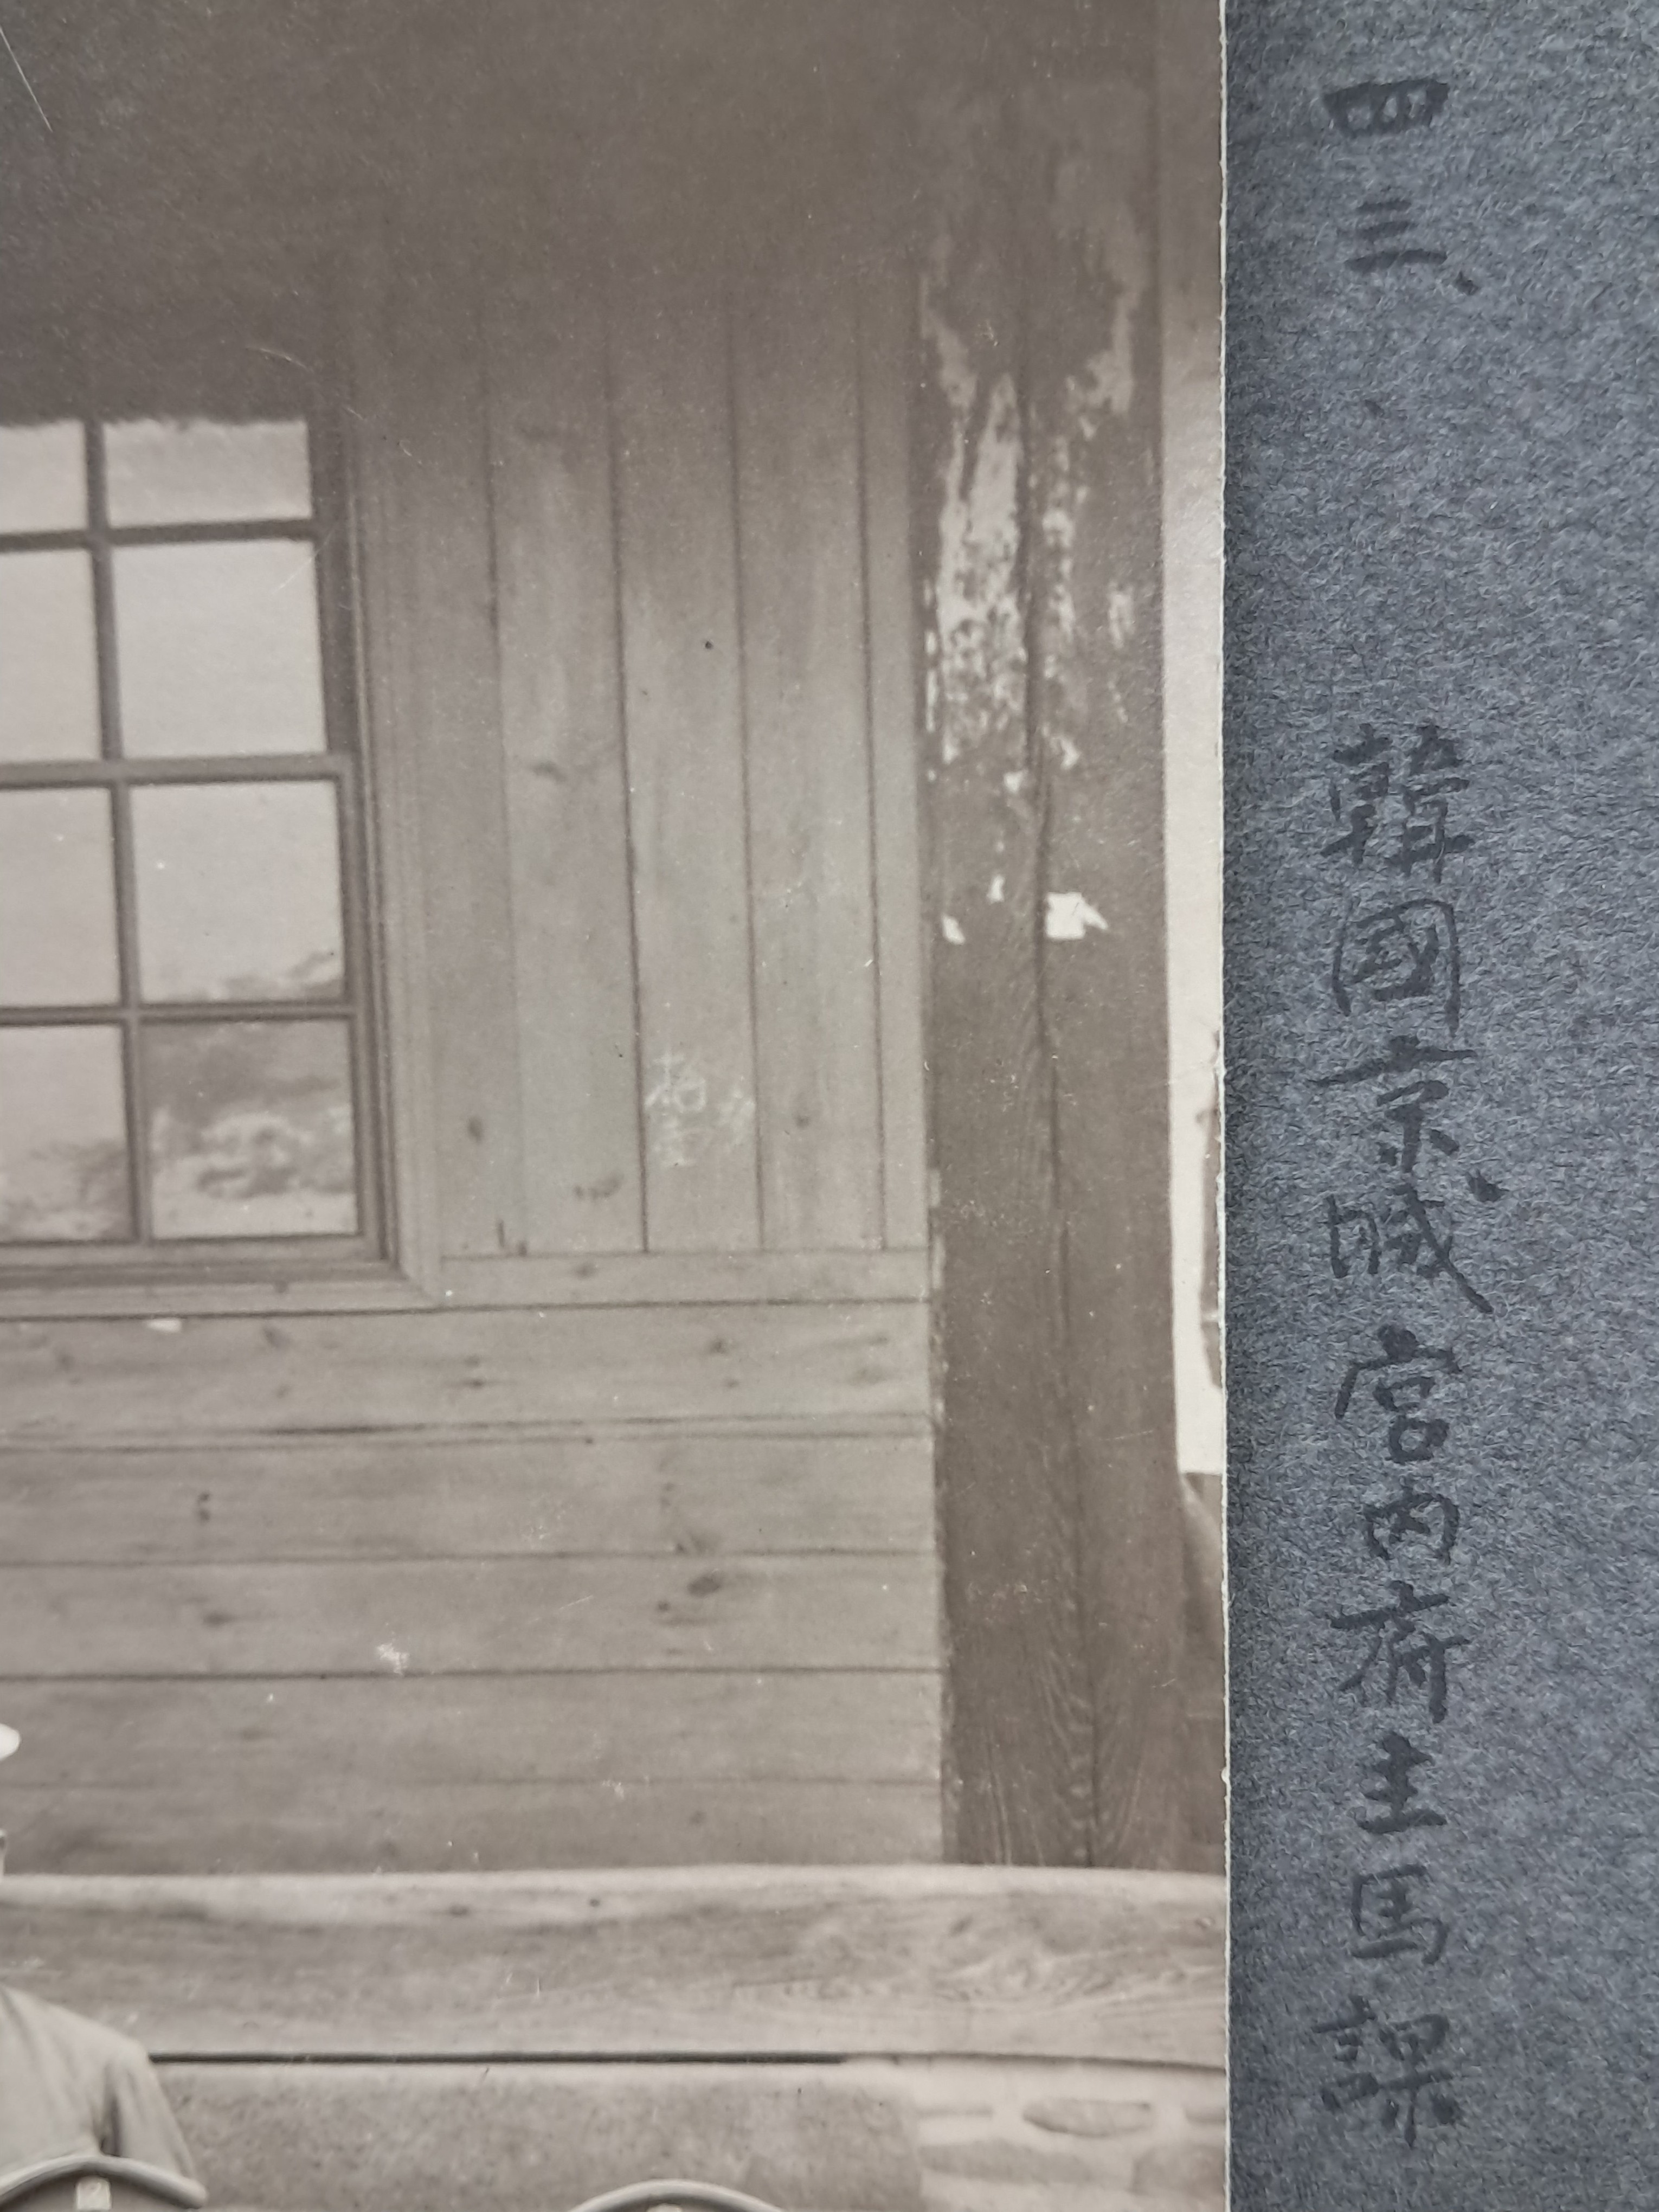 四三、 韓國京城宮内府主馬課